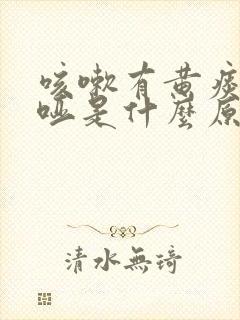 咳嗽有黄痰
哑是什麼原
清水無琦